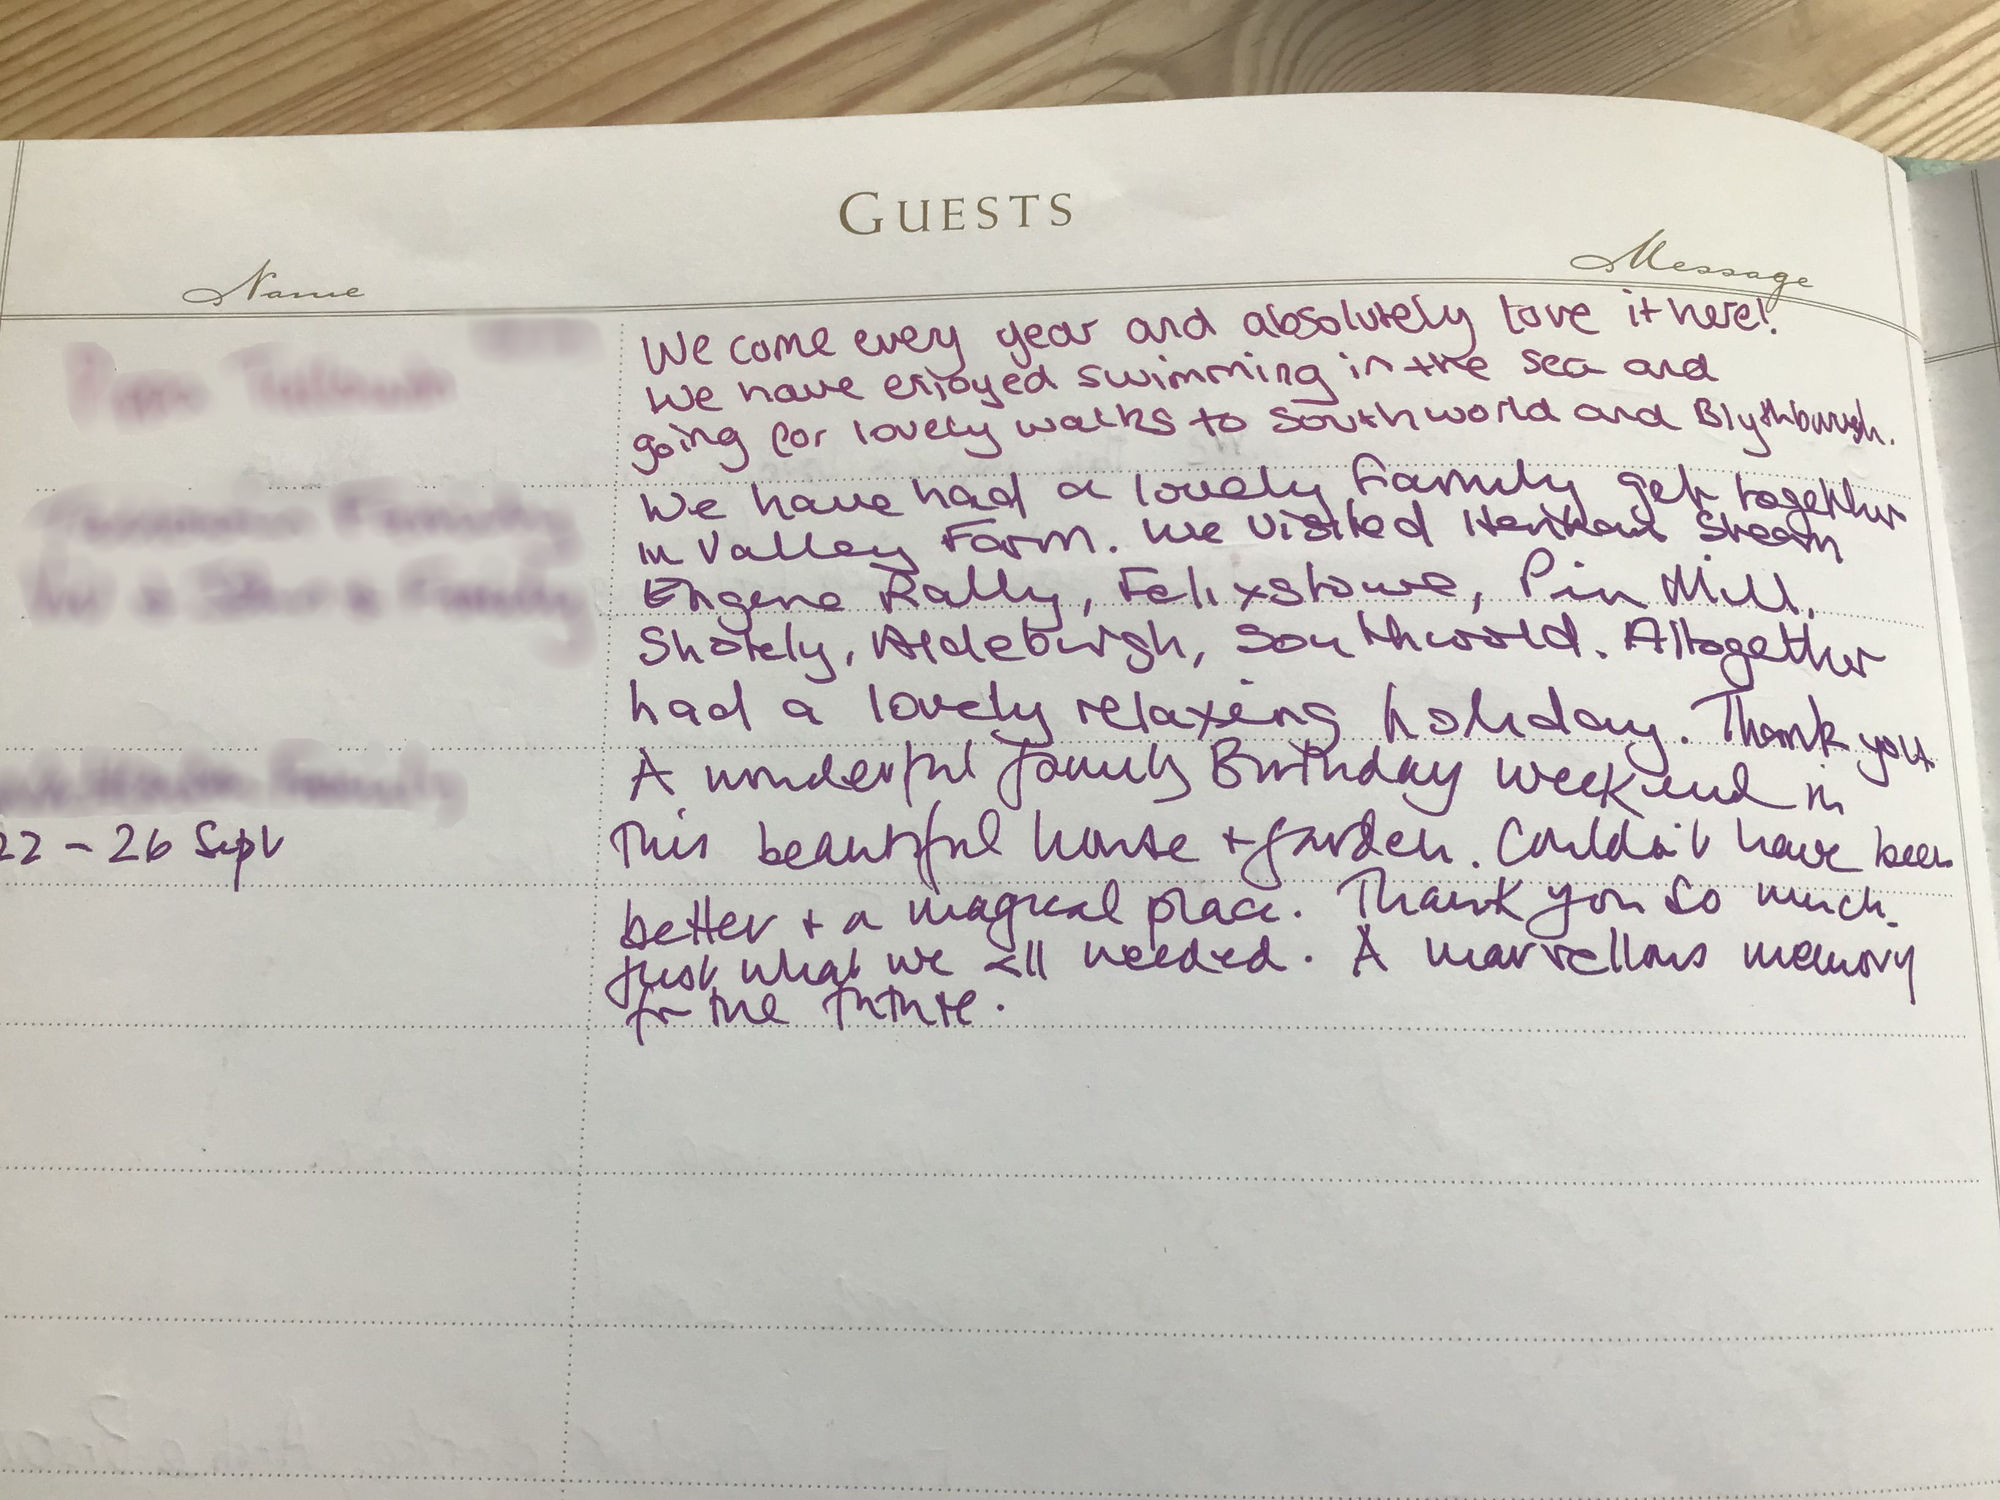 GUESTS
Name
Message
We come every year and absolutely love it here!
We have enjoyed swimming in the sea and
going for lovely walks to Southworld and
We have had a lovely Family get together
in Valley Farm. We visited Steam
Engene Rally, Felixstowe, Pin Mill,
Shotely, Aldeburgh, Southwold. Altogether
had a lovely relaxing holiday. Thank you.
A wonderful family Birthday weekend in
22 - 26 Sept
This beautiful house + garden. Couldn't have been
better + a magical place. Thank you so much.
Just what we all needed. A marvellous memory
for the future.